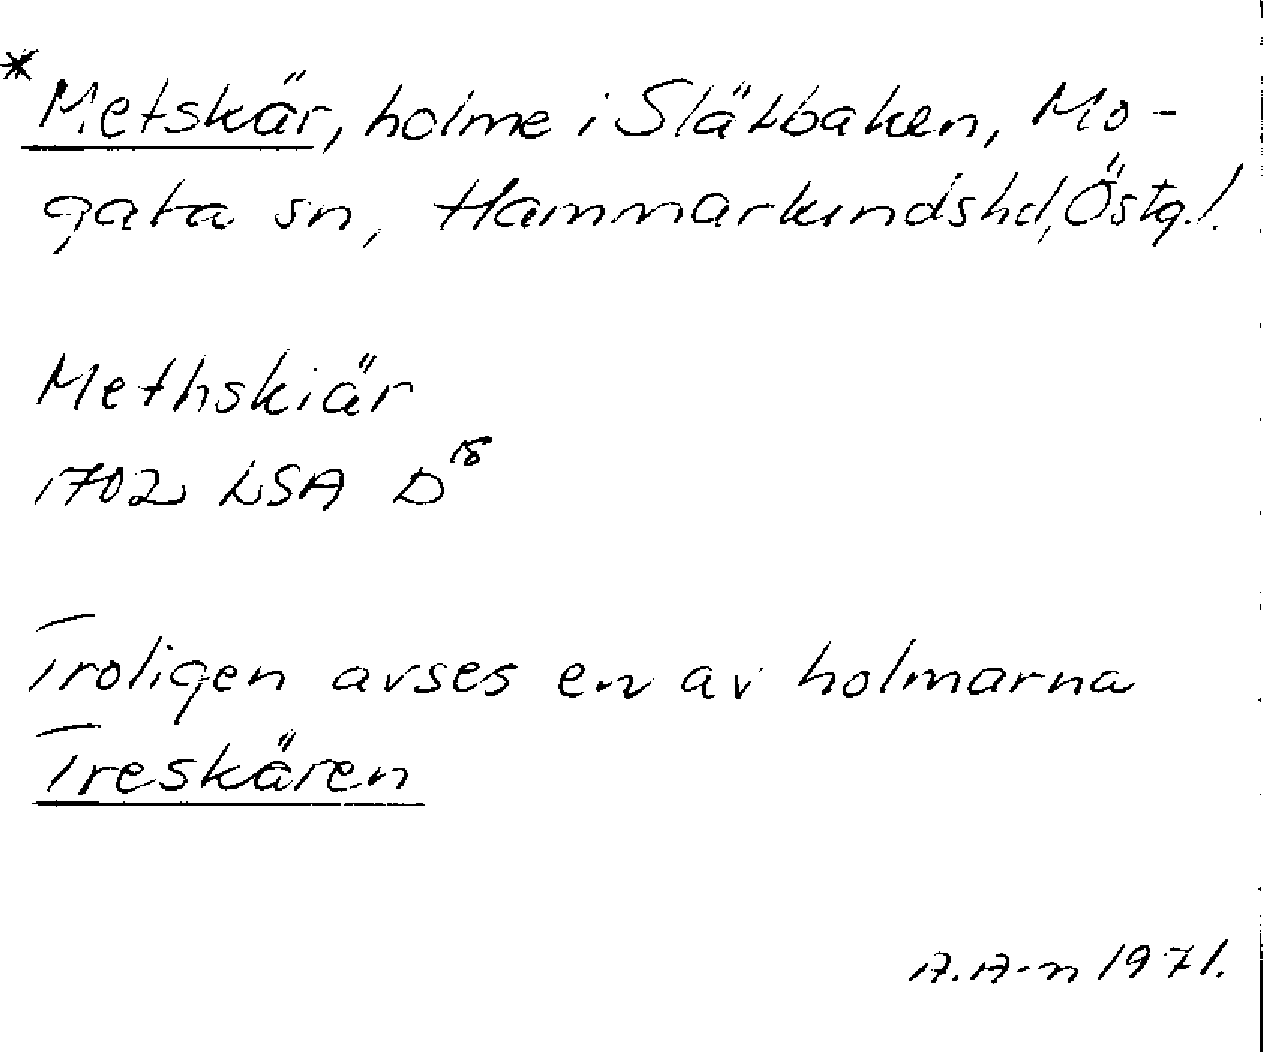 *Metskär, holme i Slätbaken, Mo-
gata sn, Hammarkindshd, Östg.l.
Methskiär
1702 LSA D18
Troligen avses en av holmarna
Treskären
A.A-n 1971.